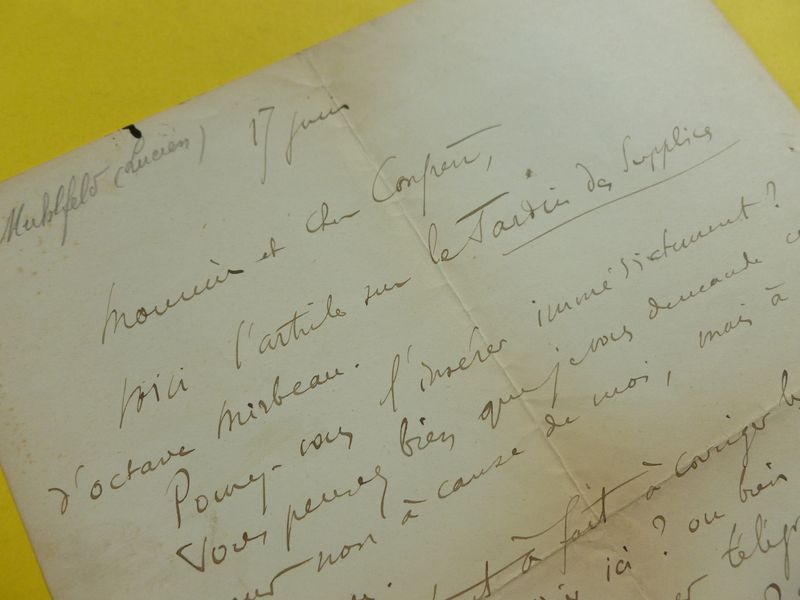 Muhlfeld (Lucien)
17 juin
Monsieur et cher Confrère,
Voici l'article sur le Jardin des Supplices
d'Octave Mirbeau.
Pouvez-vous l'insérer immédiatement ?
Vous pensez bien que je vous demande
non à cause de moi, mais à
à fait à corriger
ici ? ou bien